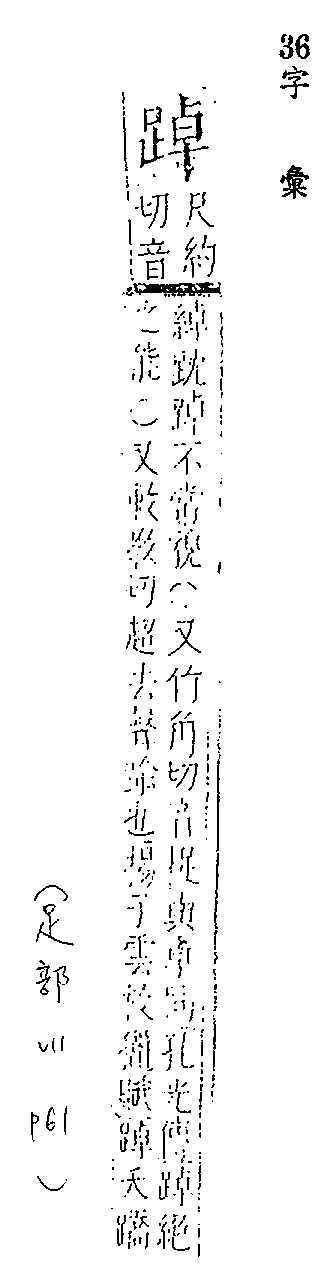 36 字 彙
踔
尺約
切音
綽踸踔不常貌○又竹角切音捉與卓同孔光傳踔絕
之能○又敕教切超去聲踰也揚子雲校獵賦踔夭蹻
(足部 VII p61)